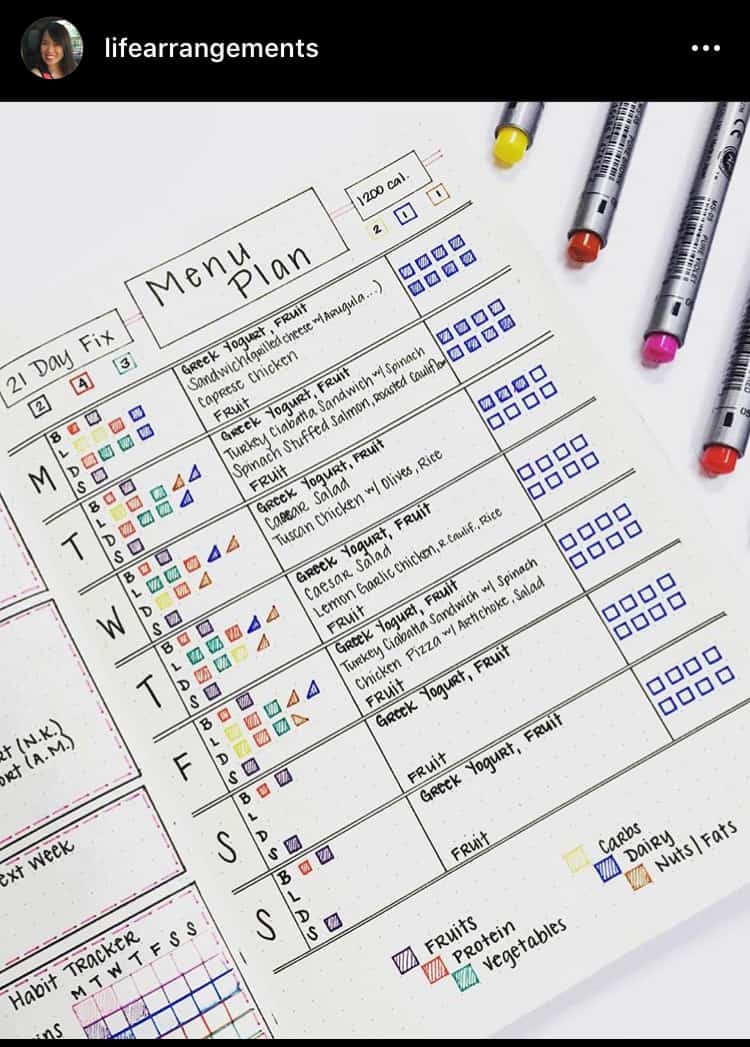 lifearrangements
1200 cal.
Menu
Plan
21 Day Fix
2 4 3 2 1 1
M
B
L
D
S
Greek Yogurt, Fruit
Sandwich (grilled cheese w/ Arugula...)
Caprese Chicken
Fruit
T
B
L
D
S
Greek Yogurt, Fruit
Turkey Ciabatta Sandwich w/ Spinach
Spinach Stuffed Salmon, Roasted Cauliflower
Fruit
W
B
L
D
S
Greek Yogurt, Fruit
Caesar Salad
Tuscan Chicken w/ Olives, Rice
T
B
L
D
S
Greek Yogurt, Fruit
Caesar Salad
Lemon Garlic Chicken, R. Caulif., Rice
Fruit
F
B
L
D
S
Greek Yogurt, Fruit
Turkey Ciabatta Sandwich w/ Spinach
Chicken Pizza w/ Artichoke, Salad
Fruit
S
B
L
D
S
Greek Yogurt, Fruit
Fruit
S
B
L
D
S
Greek Yogurt, Fruit
Fruit
Fruits
Protein
Vegetables
Carbs
Dairy
Nuts/Fats
(N.K.)
(A.M.)
Week
Habit Tracker
M T W T F S S